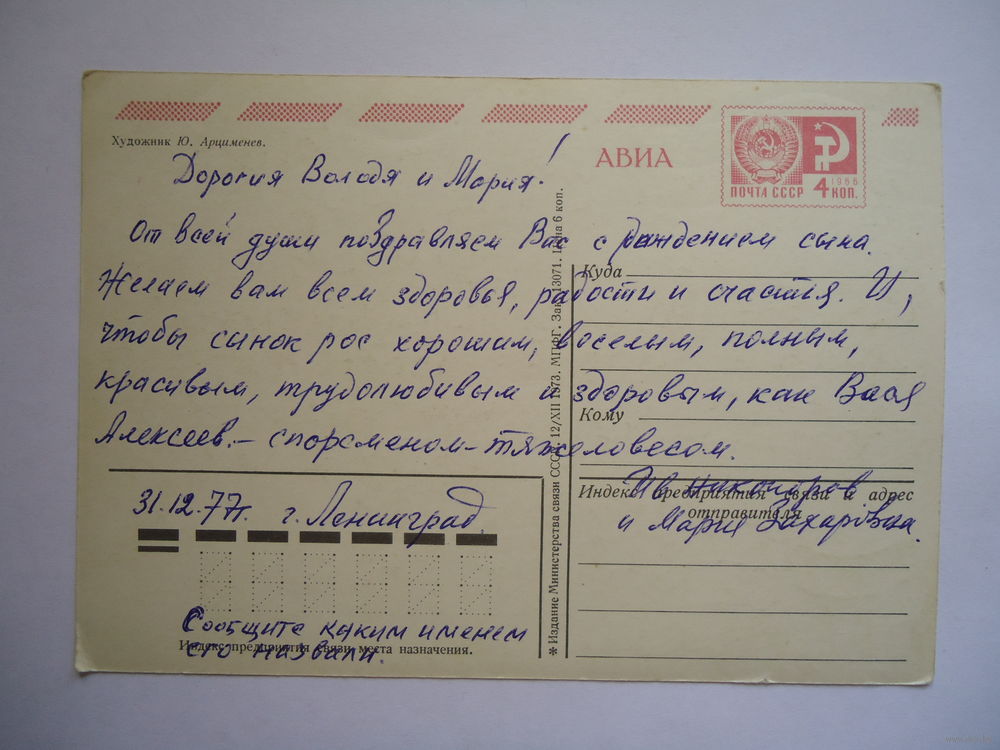 Художник Ю. Арцименев.
АВИА
1966
ПОЧТА СССР 4 КОП.
Дорогия Володя и Мария!
От всей души поздравляем Вас с рождением сына.
Желаем вам всем здоровья, радости и счастья. И,
чтобы сынок рос хорошим, веселым, полным,
красивым, трудолюбивым и здоровым, как Вася
Алексеев. – спорсменом-тяжеловесом.
и Мария Захаровна.
31.12.77г. г. Ленинград
Сообщите каким именем
его назвали.
Куда
Кому
Индекс предприятия связи и адрес
отправителя
Индекс предприятия связи места назначения.
✻ Издание Министерства связи СССР. 12/XII 1973. МПФГ. Зак. 13071. Цена 6 коп.